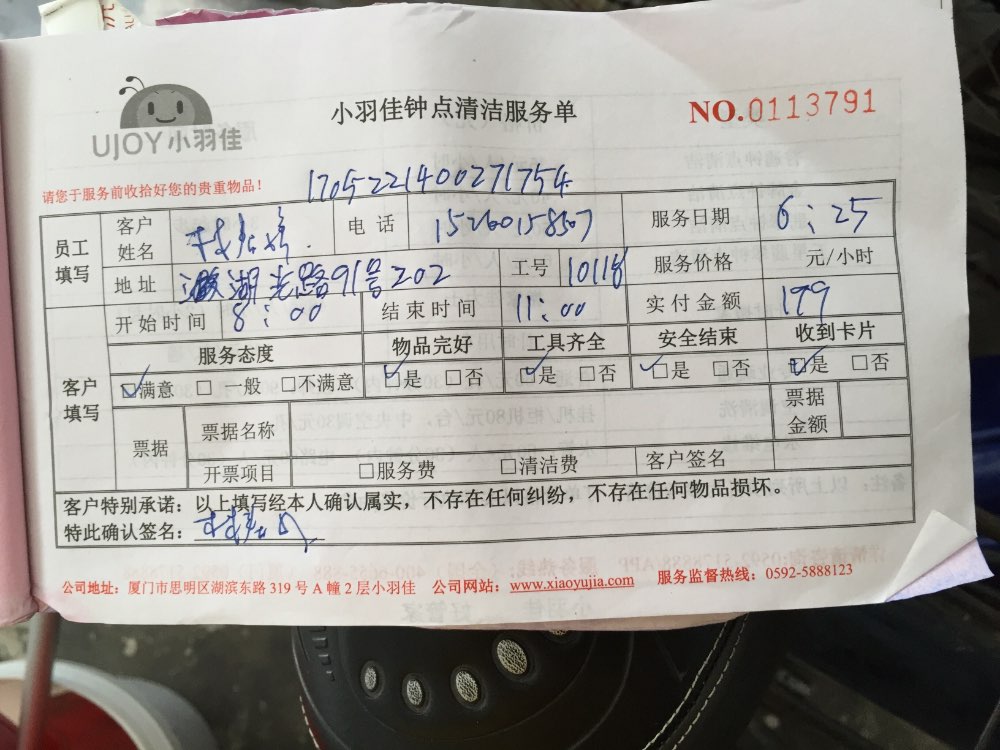 UJOY小羽佳
小羽佳钟点清洁服务单
NO.0113791
请您于服务前收拾好您的贵重物品！
1705221400271754
员工填写 客户姓名 电话 15260158567 服务日期 6:25
地址 湖光路91号202 工号 10118 服务价格 元/小时
开始时间 8:00 结束时间 11:00 实付金额 199
客户填写 服务态度 物品完好 工具齐全 安全结束 收到卡片
☑满意 □一般 □不满意 ☑是 □否 ☑是 □否 ☑是 □否 ☑是 □否
票据 票据名称 票据金额
开票项目 □服务费 □清洁费 客户签名
客户特别承诺：以上填写经本人确认属实，不存在任何纠纷，不存在任何物品损坏。
特此确认签名：
公司地址：厦门市思明区湖滨东路 319 号 A 幢 2 层小羽佳 公司网站：www.xiaoyujia.com 服务监督热线：0592-5888123